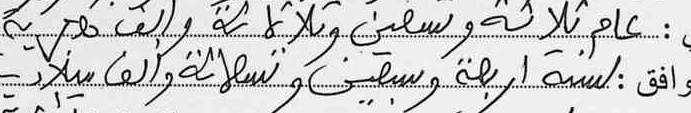 : عام ثلاثة وتسعين وثلاثمائة وألف هجرية
وافق : لسنة اربعة وسبعين وتسعمائة وألف ميلادية